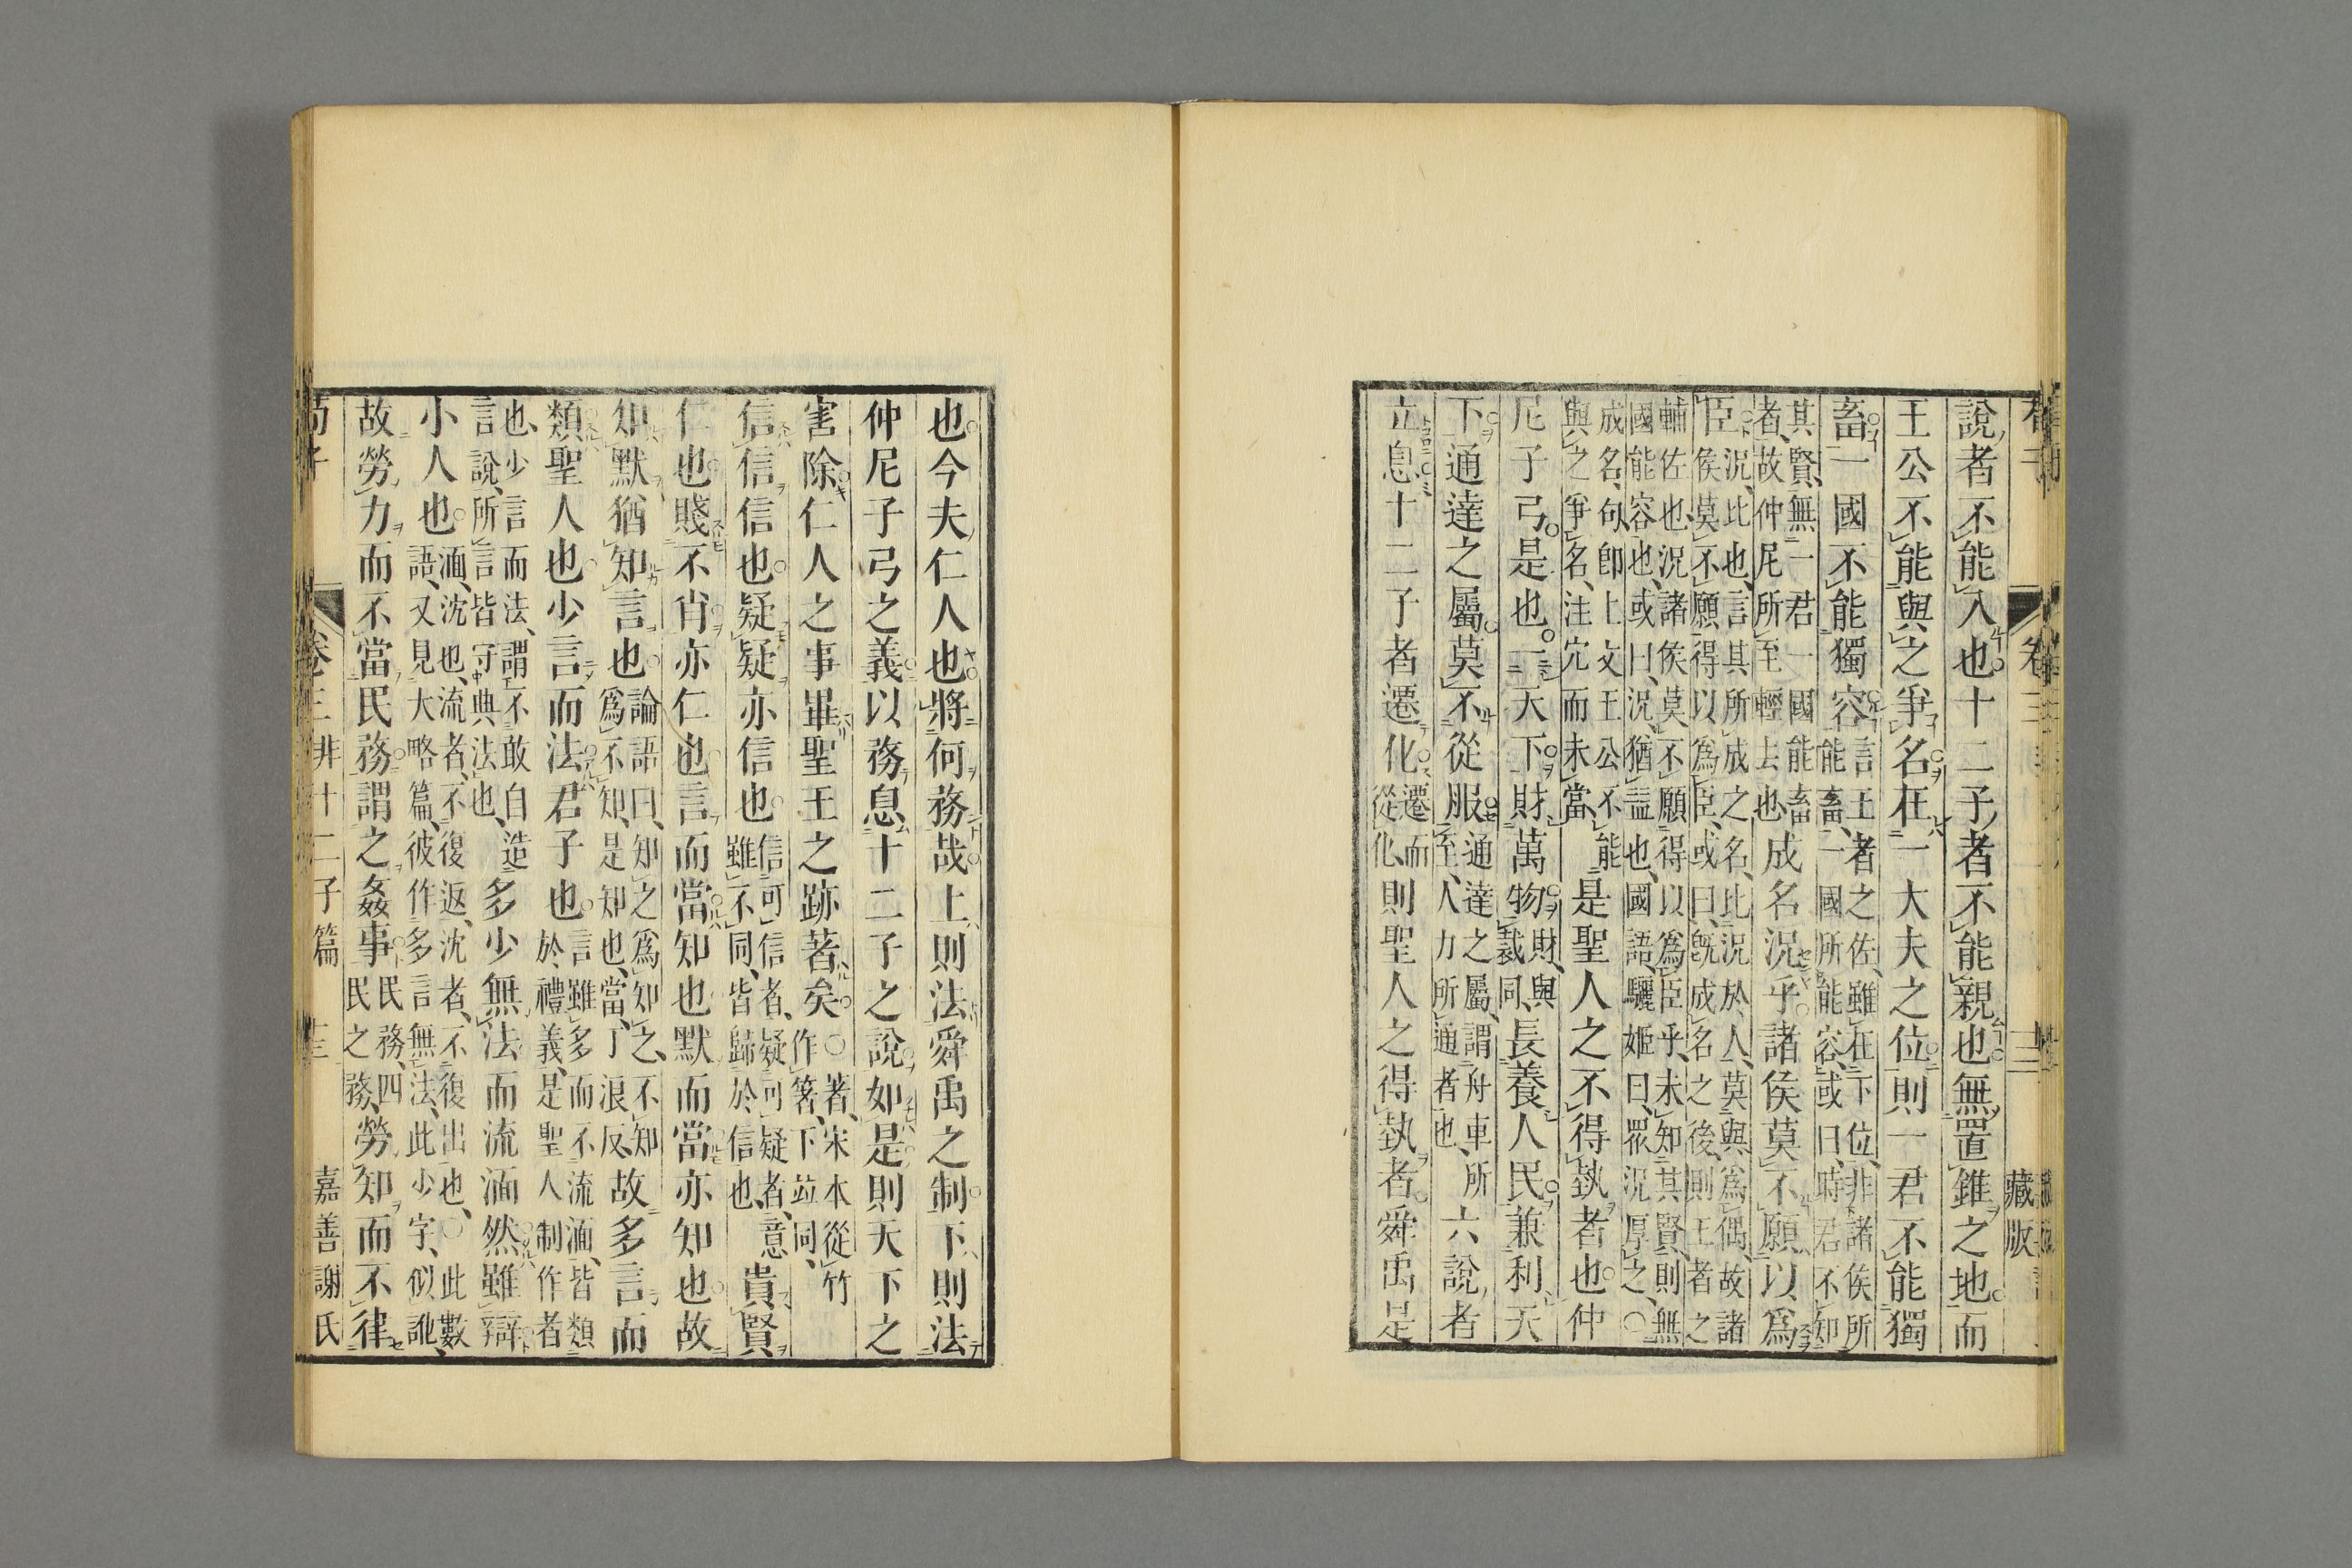 藏版
說者不能入也十二子者不能親也無置錐之地而
王公不能與之爭名在一大夫之位則一君不能獨
畜一國不能獨容
言王者之佐雖在下位非諸侯所
能畜一國所能容或曰時君不知
其賢無一君一國能畜
者故仲尼所至輕去也
成名況乎諸侯莫不願以爲
臣
況比也言其所成之名比況於人莫與爲偶故諸
侯莫不願得以爲臣或曰旣成名之後則王者之
輔佐也況諸侯莫不願得以爲臣乎未知其賢則無
國能容也或曰況猶益也國語驪姬曰眾況厚之○
成名句卽上文王公不能
與之爭名注冗而未當
是聖人之不得埶者也仲
尼子弓是也一天下財萬物
財與
裁同
長養人民兼利天
下通達之屬莫不從服
通達之屬謂舟車所
至人力所通者也
六說者
立息十二子者遷化
遷而
從化
則聖人之得埶者舜禹是
也今夫仁人也將何務哉上則法舜禹之制下則法
仲尼子弓之義以務息十二子之說如是則天下之
害除仁人之事畢聖王之跡著矣
○著宋本從竹
作箸下竝同
信信信也疑疑亦信也
信可信者疑可疑者意
雖不同皆歸於信也
貴賢
仁也賤不肖亦仁也言而當知也默而當亦知也故
知默猶知言也
論語曰知之爲知之不知
爲不知是知也當丁浪反
故多言而
類聖人也少言而法君子也
言雖多而不流湎皆類
於禮義是聖人制作者
也少言而法謂不敢自造
言說所言皆守典法也
多少無法而流湎然雖辯
小人也
湎沈也流者不復返沈者不復出也○此數
語又見大略篇彼作多言無法此少字似訛
故勞力而不當民務謂之姦事
民務四
民之務
勞知而不律
荀子
卷三
非十二子篇
嘉善謝氏